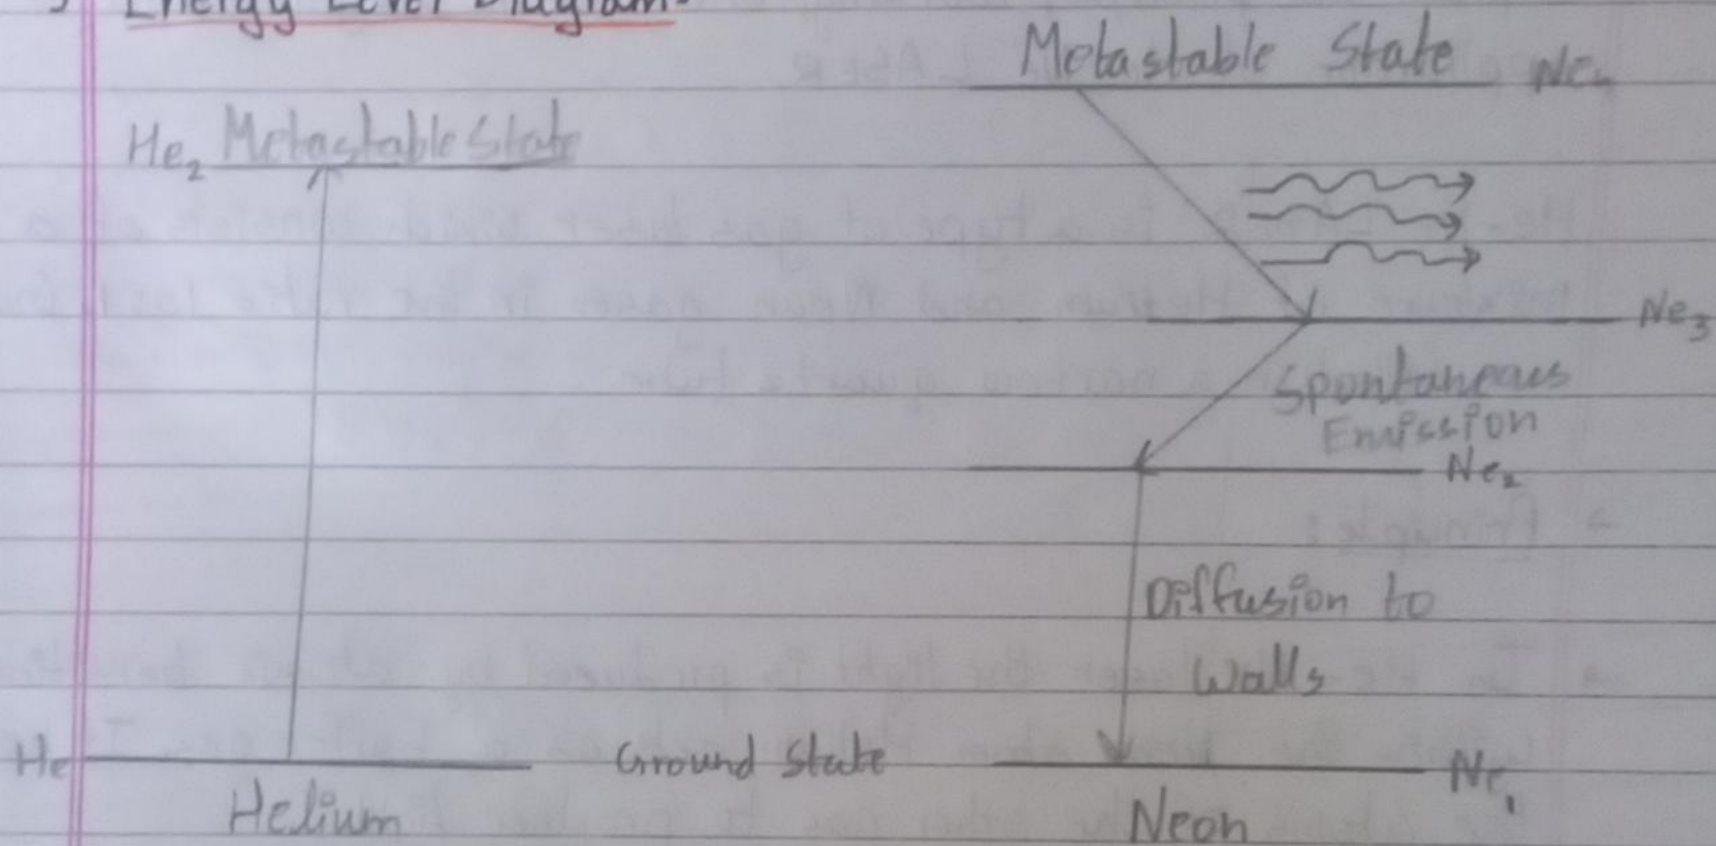 Energy Level Diagram
Metastable State
He₂ Metastable State
Ne₃
Spontaneous
Emission
Ne₂
Diffusion to
Walls
He Ground State Ne₁
Helium Neon